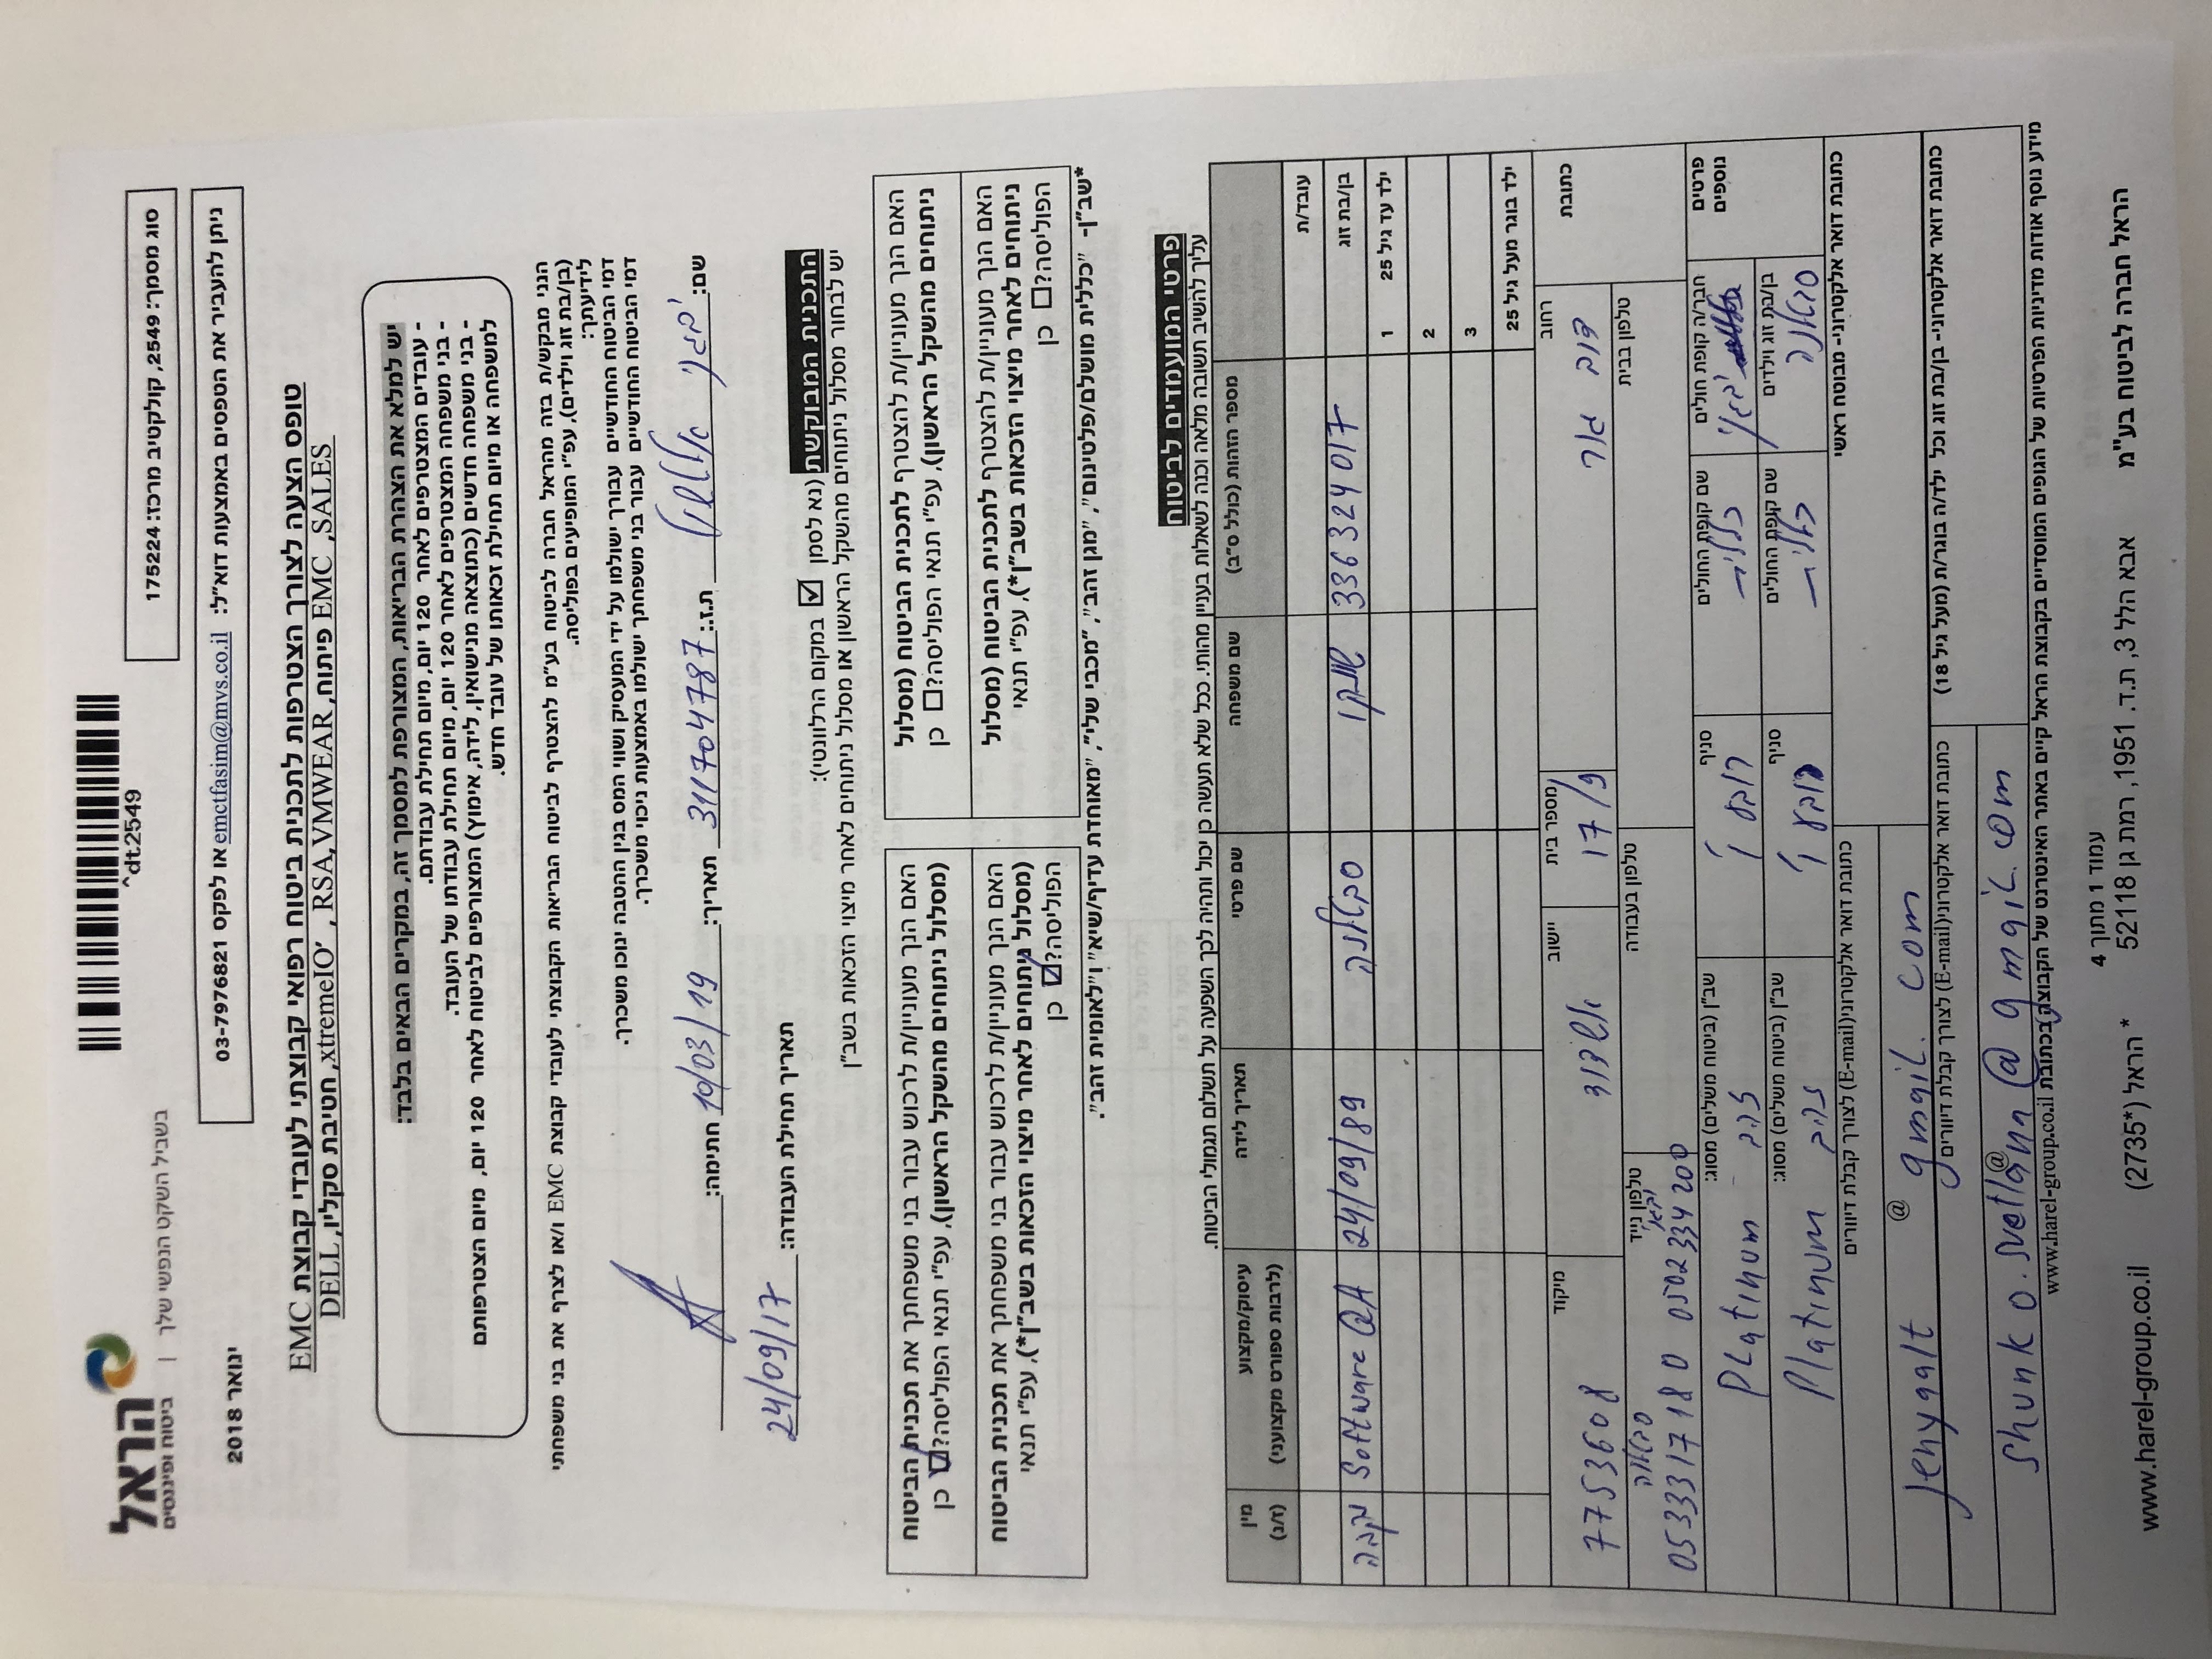 הראל
ביטוח ופיננסים | בשביל השקט הנפשי שלך
^dt2549
סוג מסמך: 2549, קולקטיב מרכז: 175224
ניתן להעביר את הטפסים באמצעות דוא"ל: emctfasim@mvs.co.il או לפקס 03-7976821
ינואר 2018
טופס הצעה לצורך הצטרפות לתכנית ביטוח רפואי קבוצתי לעובדי קבוצת EMC
EMC ,SALES פיתוח, RSA,VMWEAR , xtremeIO', חטיבת סקליו, DELL
יש למלא את הצהרת הבריאות, המצורפת למסמך זה, במקרים הבאים בלבד:
- עובדים המצטרפים לאחר 120 יום, מיום תחילת עבודתם.
- בני משפחה המצטרפים לאחר 120 יום, מיום תחילת עבודתו של העובד.
- בני משפחה חדשים (כתוצאה מנישואין, לידה, אימוץ) המצורפים לביטוח לאחר 120 יום, מיום הצטרפותם
למשפחה או מיום תחילת זכאותו של עובד חדש.
הנני מבקש/ת בזה מהראל חברה לביטוח בע"מ להצטרף לביטוח הבריאות הקבוצתי לעובדי קבוצת EMC ו/או לצרף את בני משפחתי
(בן/בת זוג וילדים), עפ"י המופיעים בפוליסה.
לידיעתך:
דמי הביטוח החודשיים עבורך ישולמו על ידי המעסיק ושווי המס בגין ההטבה ינוכו משכרך.
דמי הביטוח החודשיים עבור בני משפחתך ישולמו באמצעות ניכוי משכרך.
שם: יבגני ת.ז.: 311704787 תאריך: 10/03/19 חתימה:
תאריך תחילת העבודה: 24/09/17
התכנית המבוקשת (נא לסמן ☑ במקום הרלוונטי):
יש לבחור מסלול ניתוחים מהשקל הראשון או מסלול ניתוחים לאחר מיצוי הזכאות בשב"ן
האם הנך מעוניין/ת להצטרף לתכנית הביטוח (מסלול
ניתוחים מהשקל הראשון), עפ"י תנאי הפוליסה? ☐ כן
האם הנך מעוניין/ת לרכוש עבור בני משפחתך את תכנית הביטוח
(מסלול ניתוחים מהשקל הראשון), עפ"י תנאי הפוליסה? ☑ כן
האם הנך מעוניין/ת להצטרף לתכנית הביטוח (מסלול
ניתוחים לאחר מיצוי הזכאות בשב"ן*), עפ"י תנאי
הפוליסה? ☐ כן
האם הנך מעוניין/ת לרכוש עבור בני משפחתך את תכנית הביטוח
(מסלול ניתוחים לאחר מיצוי הזכאות בשב"ן*), עפ"י תנאי
הפוליסה? ☑ כן
*שב"ן- "כללית מושלם/פלטינום", "מגן זהב", "מכבי שלי", "מאוחדת עדיף/שיא" ו"לאומית זהב".
פרטי המועמדים לביטוח
עליך להשיב תשובה מלאה וכנה לשאלות בעניין מהותי. ככל שלא תעשה כן יכול ותהיה לכך השפעה על תשלום תגמולי הביטוח.
מספר הזהות (כולל ס"ב) שם משפחה שם פרטי תאריך לידה עיסוק/מקצוע (לרבות ספורט מקצועני) מין (ז/נ)
עובד/ת
בן/בת זוג 336324017 שונקו סבטלנה 24/09/89 Software QA נקבה
ילד עד גיל 25 1
2
3
ילד בוגר מעל גיל 25
כתובת רחוב מספר בית יישוב מיקוד
דוב גור 17/9 אשדוד 7753608
טלפון בבית טלפון בעבודה טלפון נייד
יבגני סבטלנה
0502334200 0533317180
פרטים נוספים
חבר/ה קופת חולים שם קופת החולים סניף שב"ן (ביטוח משלים) מסוג:
יבגני כללית רובע ו' זהב Platinum
בן/בת זוג וילדים שם קופת החולים סניף שב"ן (ביטוח משלים) מסוג:
סבטלנה כללית רובע ו' זהב Platinum
כתובת דואר אלקטרוני- מבוטח ראשי כתובת דואר אלקטרוני(E-mail) לצורך קבלת דיוורים
jenyaalt @ gmail. com
כתובת דואר אלקטרוני- בן/בת זוג וכל ילד/ה בוגר/ת (מעל גיל 18) כתובת דואר אלקטרוני(E-mail) לצורך קבלת דיוורים
@
shunko.svetlana@gmail.com
מידע נוסף אודות מדיניות הפרטיות של הגופים המוסדיים בקבוצת הראל קיים באתר האינטרנט של הקבוצה בכתובת www.harel-group.co.il
עמוד 1 מתוך 4
הראל חברה לביטוח בע"מ אבא הלל 3, ת.ד. 1951, רמת גן 52118 * הראל (*2735) www.harel-group.co.il